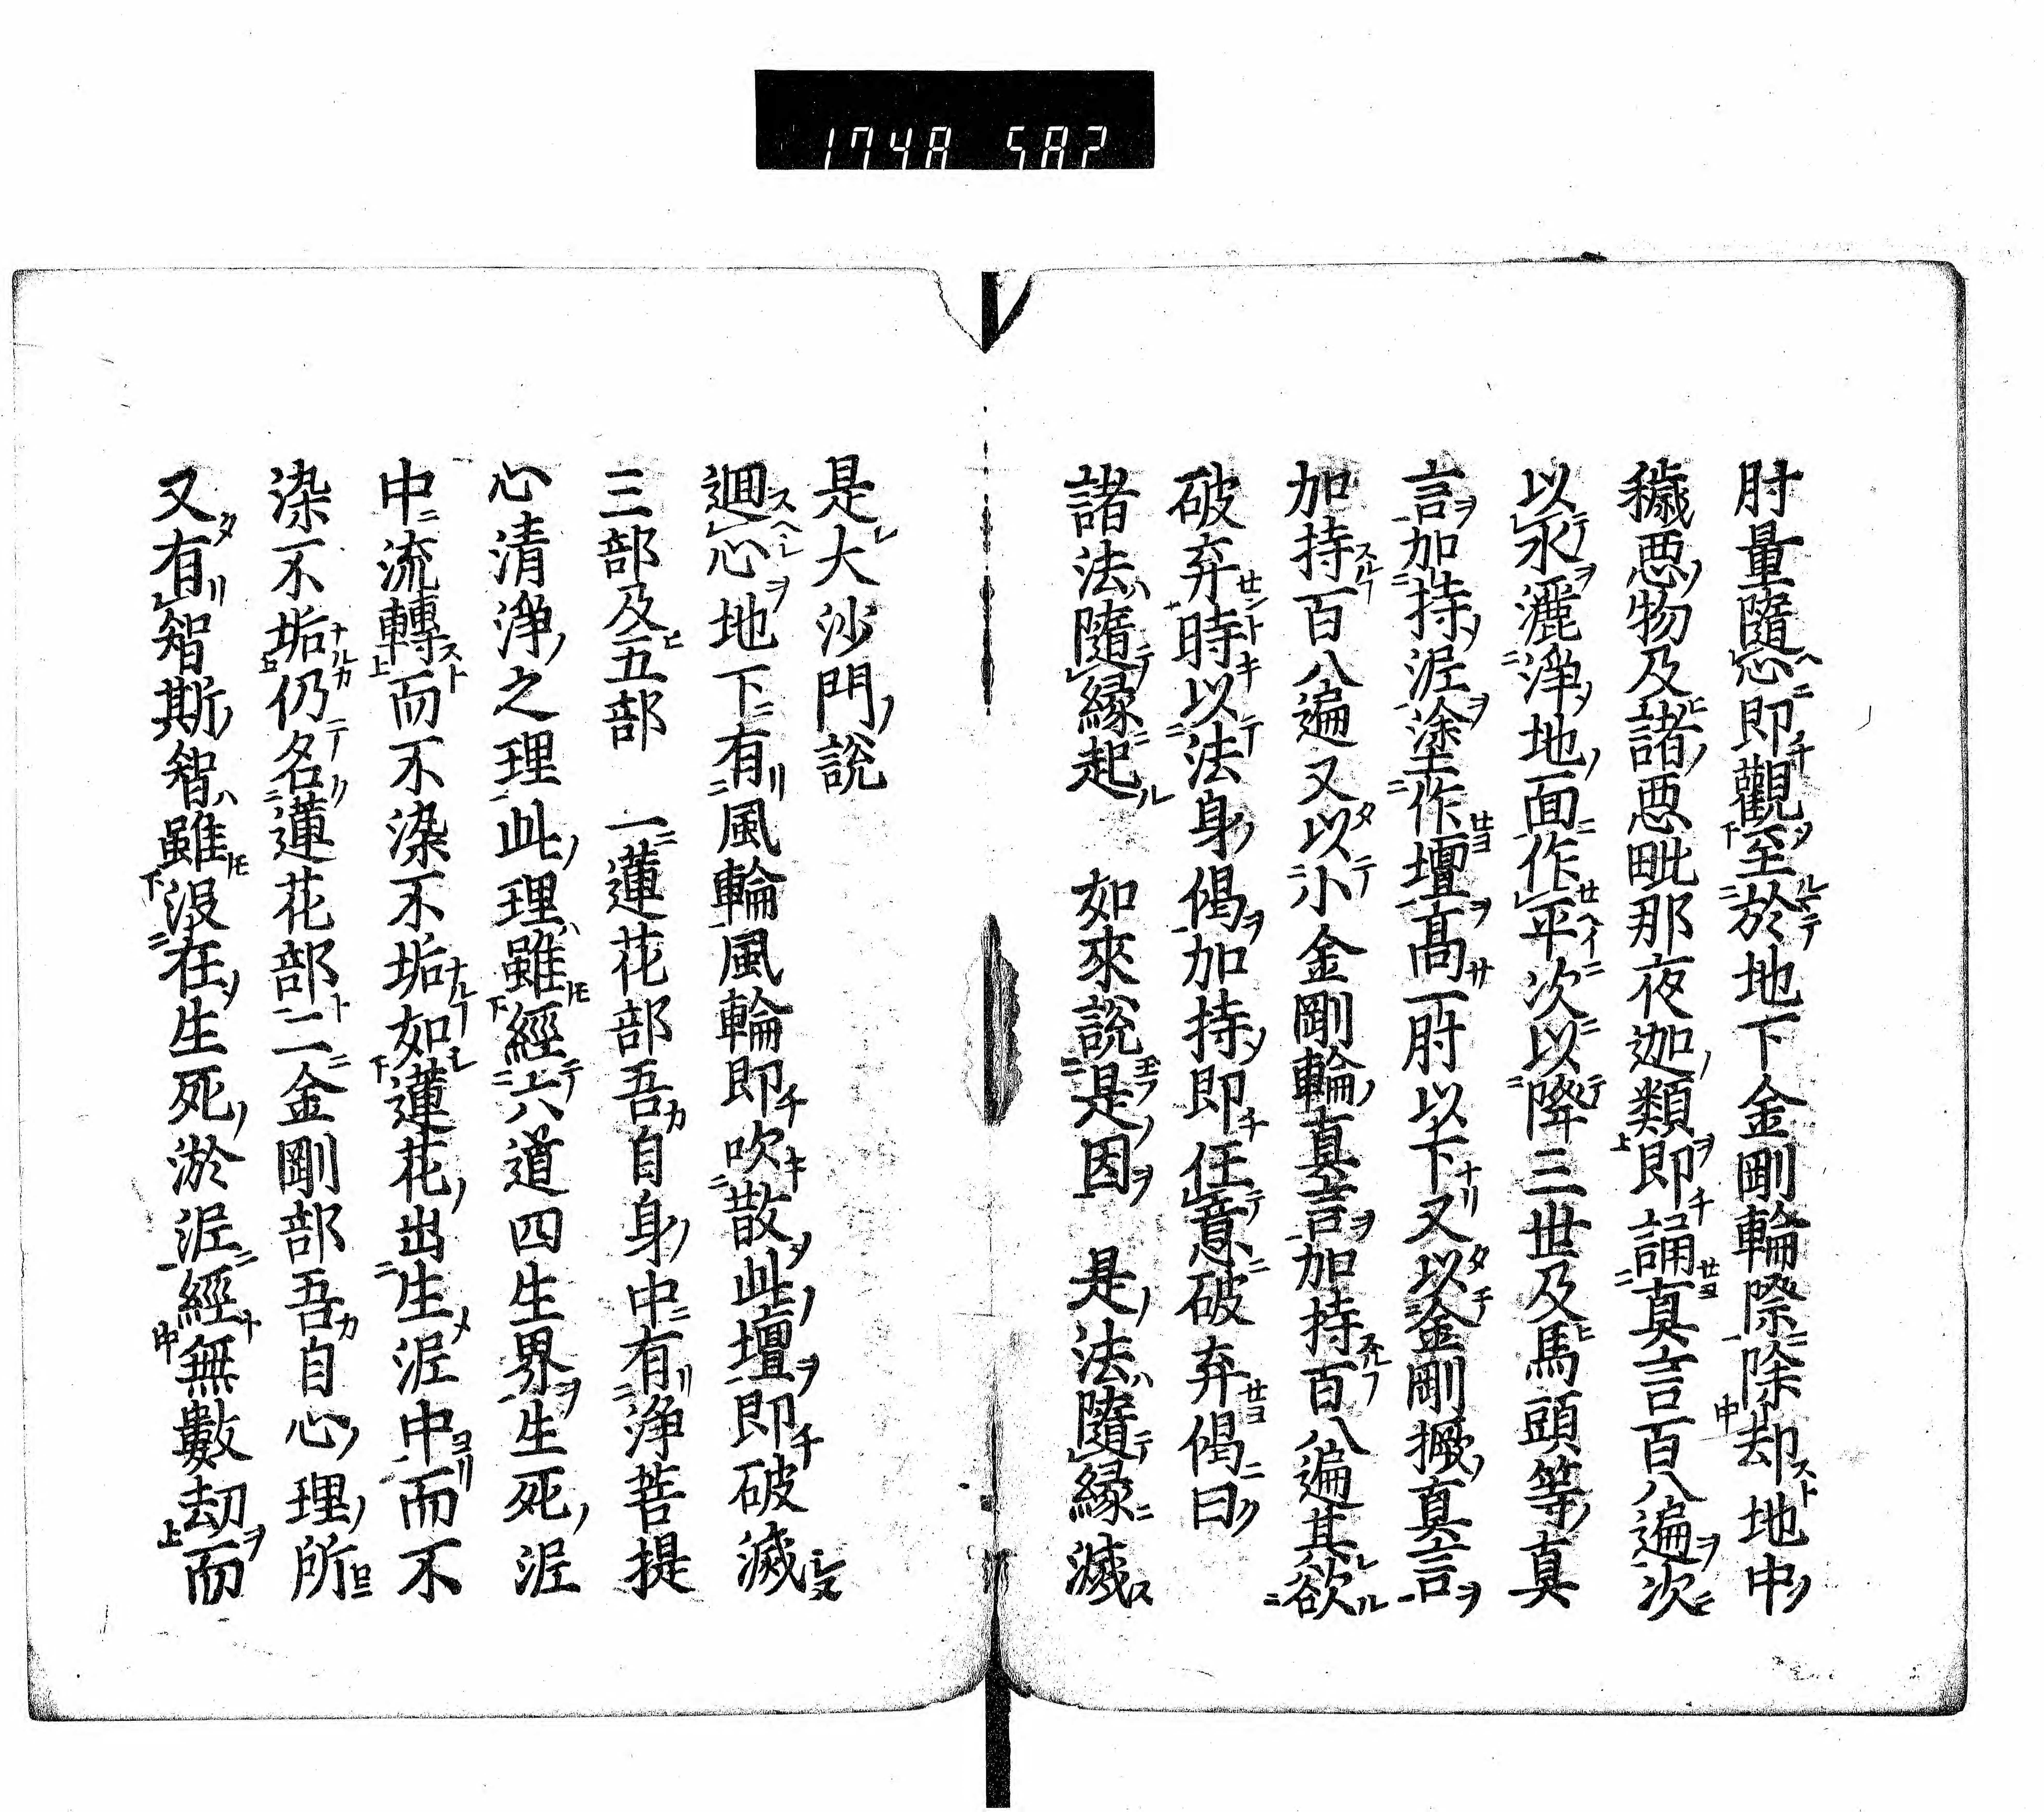 1748 582
肘量隨心即觀至於地下金剛輪際除却地中
穢悪物及諸悪毗那夜迦類即誦真言百八遍次
以水灑浄地面作平次以降三世及馬頭等真
言加持泥塗作壇髙一肘以下又以金剛橛真言
加持百八遍又以小金剛輪真言加持百八遍其欲
破弃時以法身偈加持即任意破弃偈曰
諸法隨縁起　如來說是因　是法隨縁滅
是大沙門說
迴心地下有風輪風輪即吹散此壇即破滅
三部及五部　一蓮花部吾自身中有浄菩提
心清浄之理此理雖經六道四生界生死泥
中流轉而不染不垢如蓮花出生泥中而不
染不垢仍名蓮花部二金剛部吾自心理所
又有智斯智雖沒在生死淤泥經無數劫而